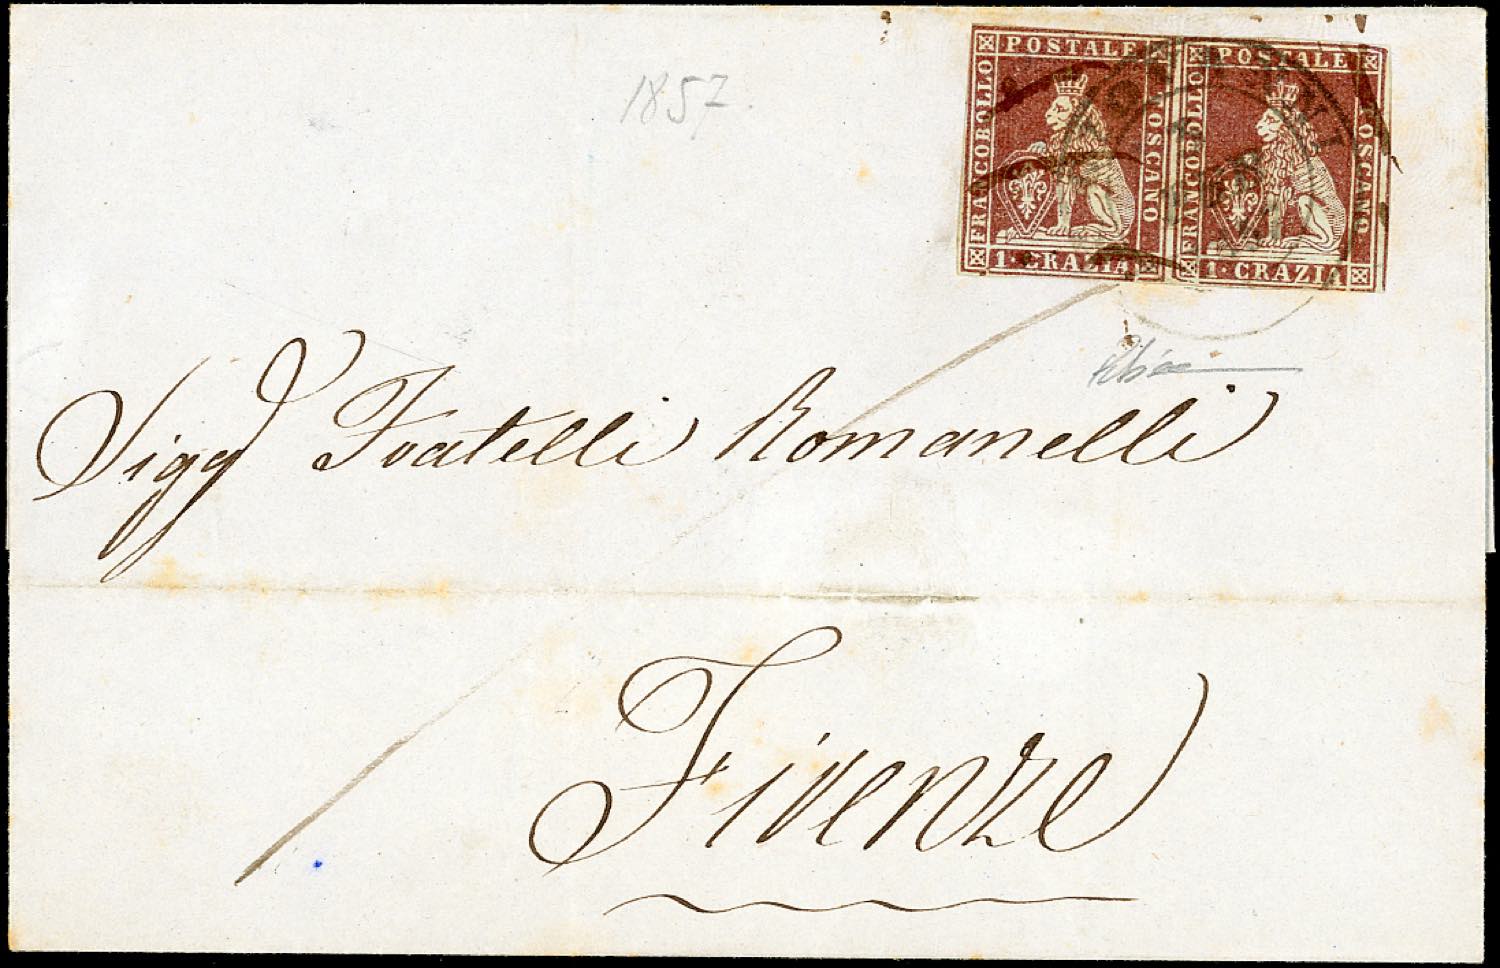 1857
FRANCOBOLLO POSTALE TOSCANO
1 CRAZIA
FRANCOBOLLO POSTALE TOSCANO
1 CRAZIA
Sigg Fratelli Romanelli
Firenze